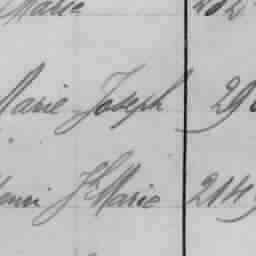 Marie
Marie Joseph 29
Henri Jh Marie 2149